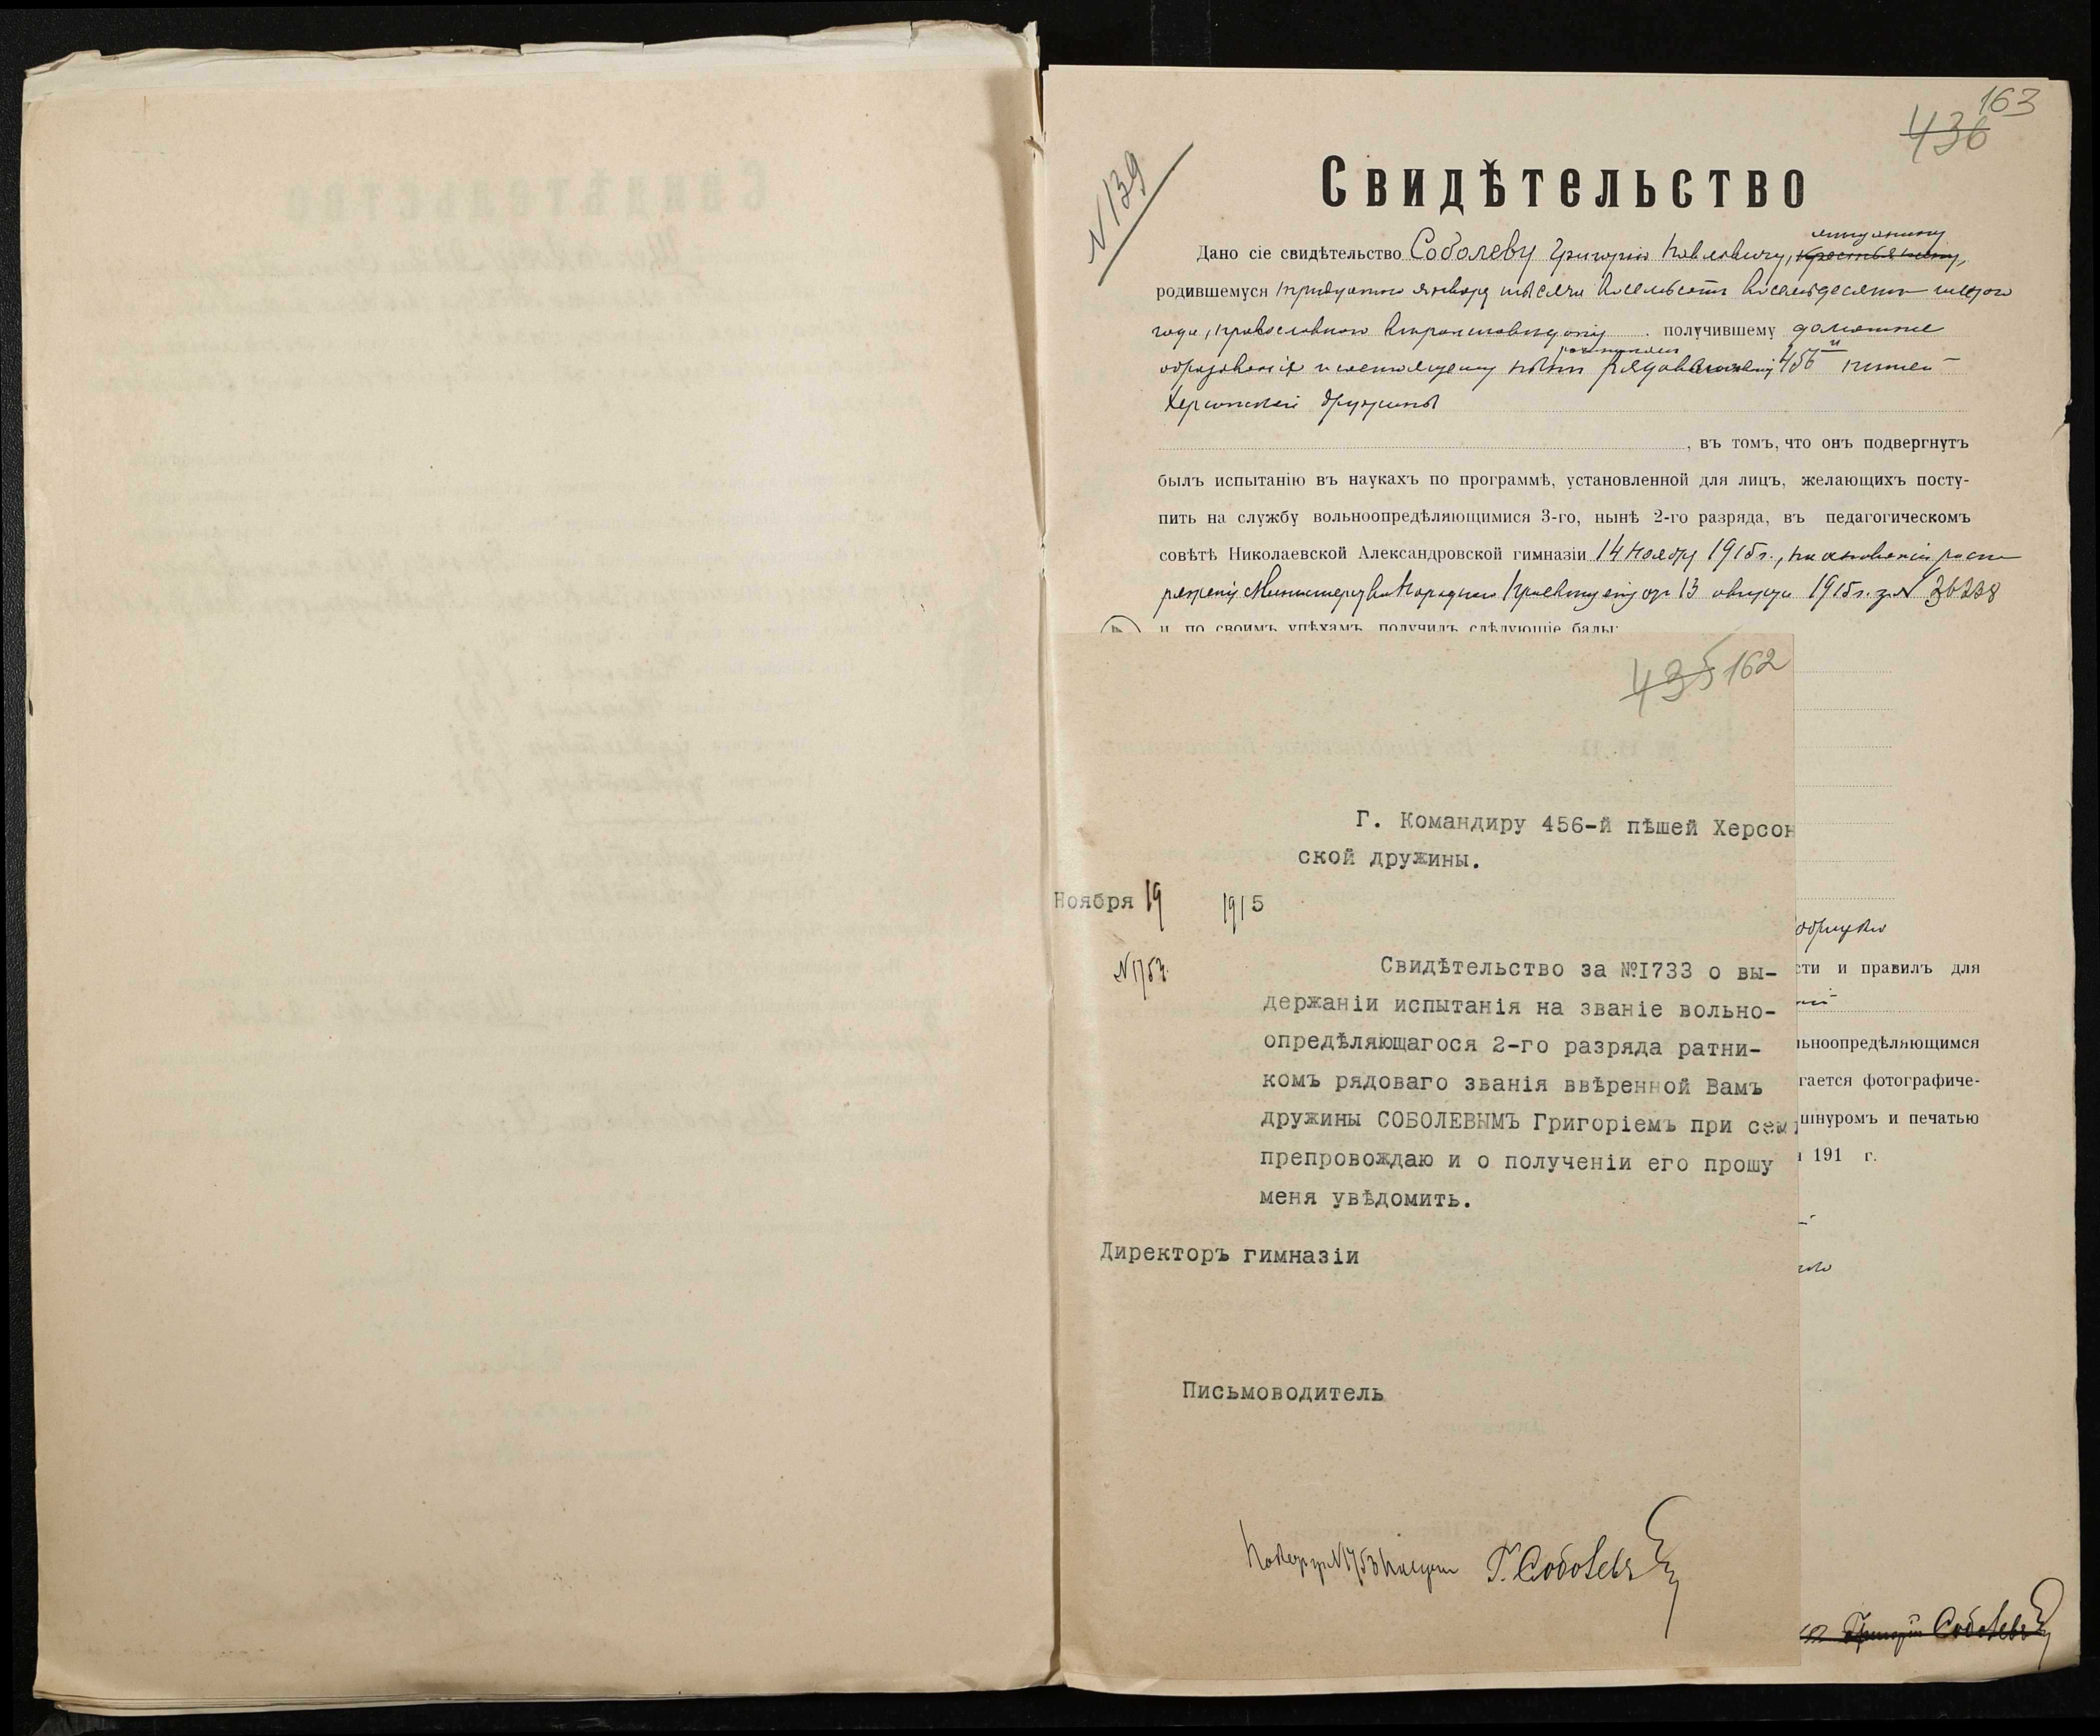 163
436
N 139
Свидѣтельство
мѣщанину
Дано сіе свидѣтельство Соболеву Григорію Павловичу, крестьянину,
родившемуся тридцатого января тысяча восемьсотъ восемьдесятъ
года, православного вѣроисповѣданія получившему домашнее
образованіе и состоящему нынѣ 456й пѣшей
Херсонской дружины
, въ томъ, что онъ подвергнутъ
былъ испытанію въ наукахъ по программѣ, установленной для лицъ, желающихъ посту-
пить на службу вольноопредѣляющимися 3-го, нынѣ 2-го разряда, въ педагогическомъ
совѣтѣ Николаевской Александровской гимназіи 14 ноября 1915 г., на основаніи распо
ряженія Министерства Народнаго Просвѣщенія отъ 13 августа 1915 г. за N 36238
и по своимъ упѣхамъ получилъ слѣдующіе балы:
435 162
Г. Командиру 456-й пѣшей Херсон
ской дружины.
Ноября 19 1915
N 1753.
Свидѣтельство за №I733 о вы-
держаніи испытанія на званіе вольно-
опредѣляющагося 2-го разряда ратни-
комъ рядоваго званія ввѣренной Вамъ
дружины СОБОЛЕВЫМЪ Григоріемъ при сем
препровождаю и о полученіи его прошу
меня увѣдомить.
Директоръ гимназіи
Письмоводитель
N 1753 Г. Соболевъ
сти и правилъ для
льноопредѣляющимся
гается фотографиче-
шнуромъ и печатью
191 г.
Григорій Соболевъ